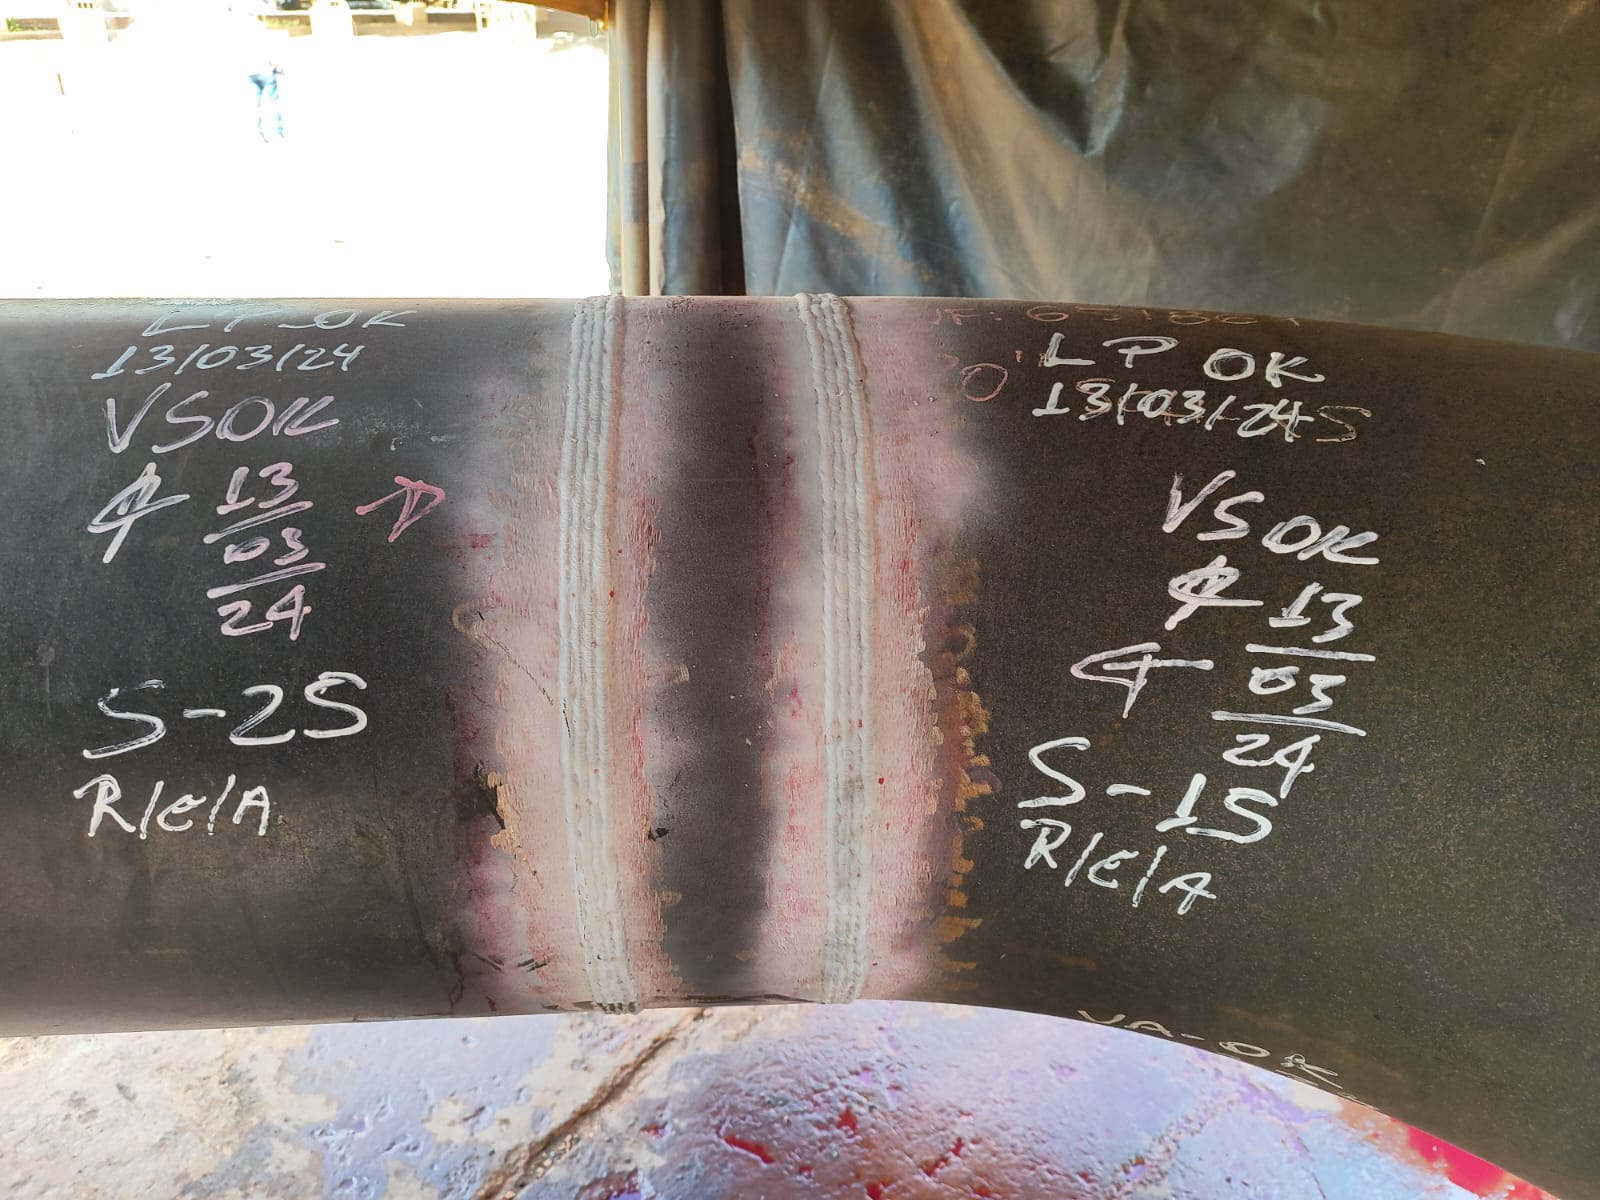 LP OK
13/03/24
VSOK
13
03
24
S-2S
R/E/A
LP OK
13/03/24
VSOK
13
03
24
S-1S
R/E/A
VA-OK